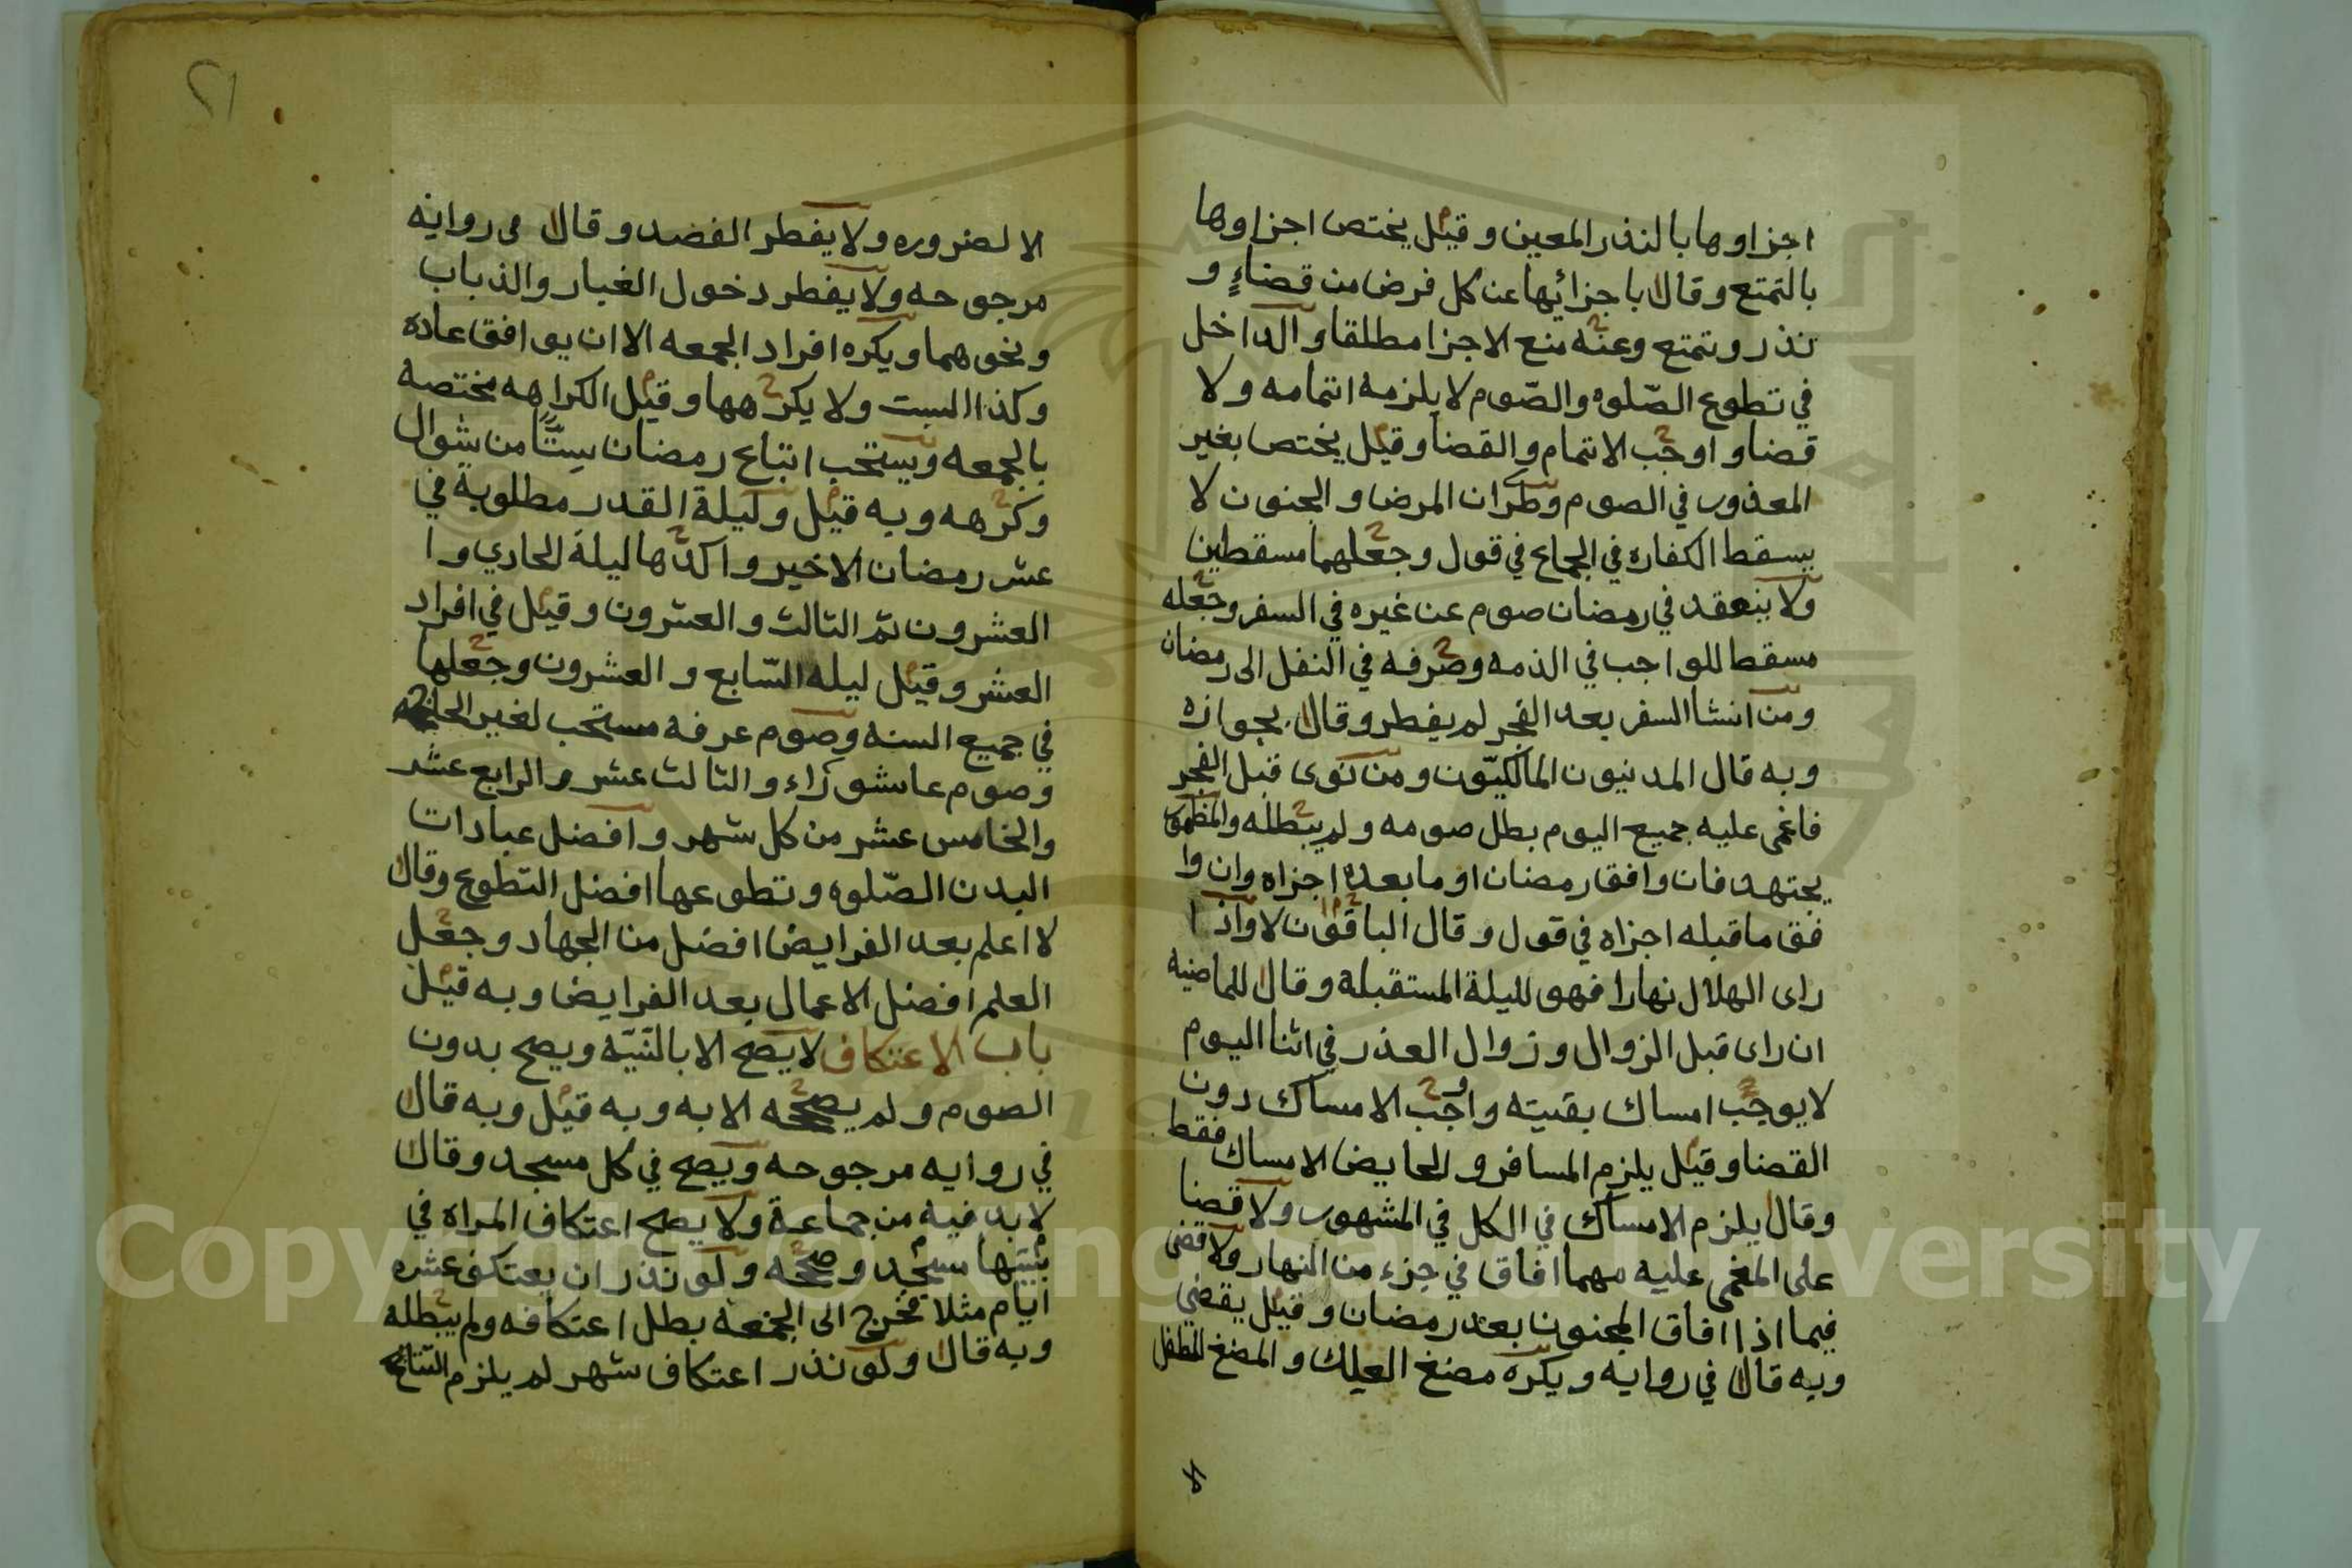 اجزاوها بالنذر المعين وقيل يختص اجزاوها
بالتمتع وقال باجزائها عن كل فرض من قضاءٍ و
نذر وتمتع وعنه منع الاجزا مطلقا والداخل
في تطوع الصّلوه والصّوم لا يلزمه اتمامه ولا
قضا واوجب الاتمام والقضا وقيل يختص بغير
المعذور في الصوم وطران المرض والجنون لا
يسقط الكفاره في الجماع في قول وجعلهما مسقطين
ولا ينعقد في رمضان صوم عن غيره في السفر وجعله
مسقطا للواجب في الذمه وصرفه في النفل الى رمضان
ومن انشا السفر بعد الفجر لم يفطر وقال بجوازه
وبه قال المدنيون المالكيّون ومن نوى قبل الفجر
فاغمى عليه جميع اليوم بطل صومه ولم يبطله والمطمور
يجتهد فان وافق رمضان او ما بعده اجزاه وان وا
فق ما قبله اجزاه في قول وقال الباقون لا واذا
راى الهلال نهارا فهو لليلة المستقبلة وقال للماضيه
ان راى قبل الزوال وزوال العذر في اثنا اليوم
لا يوجب امساك بقيته واوجب الامساك دون
القضا وقيل يلزم المسافر والحايض الامساك فقط
وقال يلزم الامساك في الكل في المشهور ولا قضا
على المغمى عليه مهما افاق في جزء من النهار ولا قضى
فيما اذا افاق المجنون بعد رمضان وقيل يقضي
وبه قال في روايه ويكره مضغ العلك والمضغ للطفل
٢١
الا لضروره ولا يفطر الفصد وقال فى روايه
مرجوحه ولا يفطر دخول الغبار والذباب
ونحوهما ويكره افراد الجمعه الا ان يوافق عاده
وكذا السبت ولا يكرهها وقيل الكراهه مختصه
بالجمعه ويستحب اتباع رمضان سِتًّا من شوال
وكرهه وبه قيل وليلة القدر مطلوبة في
عشر رمضان الاخير واكدها ليلة الحادي وا
العشرون ثم الثالث والعشرون وقيل في افراد
العشر وقيل ليله السّابع والعشرون وجعلها
في جميع السنه وصوم عرفه مستحب لغير الحاج
وصوم عاشوراء والثالث عشر والرابع عشر
والخامس عشر من كل شهر وافضل عبادات
البدن الصّلوه وتطوعها افضل التطوع وقال
لا اعلم بعد الفرايض افضل من الجهاد وجعل
العلم افضل الاعمال بعد الفرايض وبه قيل
باب الاعتكاف لا يصح الا بالنّيّه ويصح بدون
الصوم ولم يصححه الا به وبه قيل وبه قال
في روايه مرجوحه ويصح في كل مسجد وقال
لا بد فيه من جماعة ولا يصح اعتكاف المراه في
بيتها مسجد وصححه ولو نذر ان يعتكف عشره
ايام مثلا فخرج الى الجمعة بطل اعتكافه ولم يبطله
وبه قال ولو نذر اعتكاف شهر لم يلزم التتابع
Copyright © King Saud University